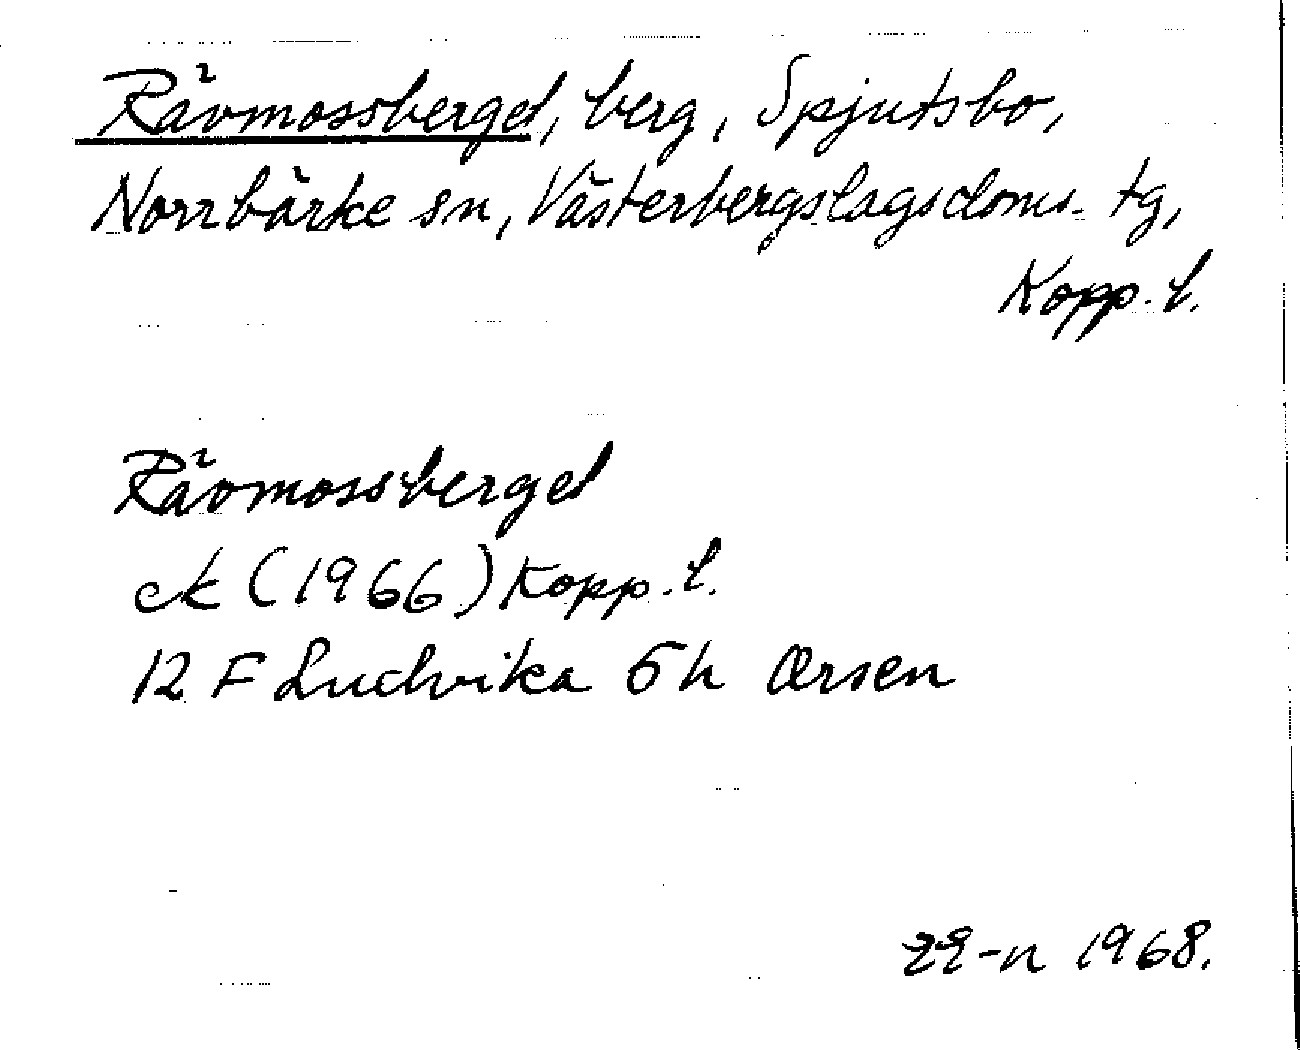 Rävmossberget, berg, Spjutsbo,
Norrbärke sn, Västerbergslagsdoms. tg,
Kopp. l.
Rävmossberget
ek (1966) Kopp. l.
12 F Ludvika 5h Örsen
1968.